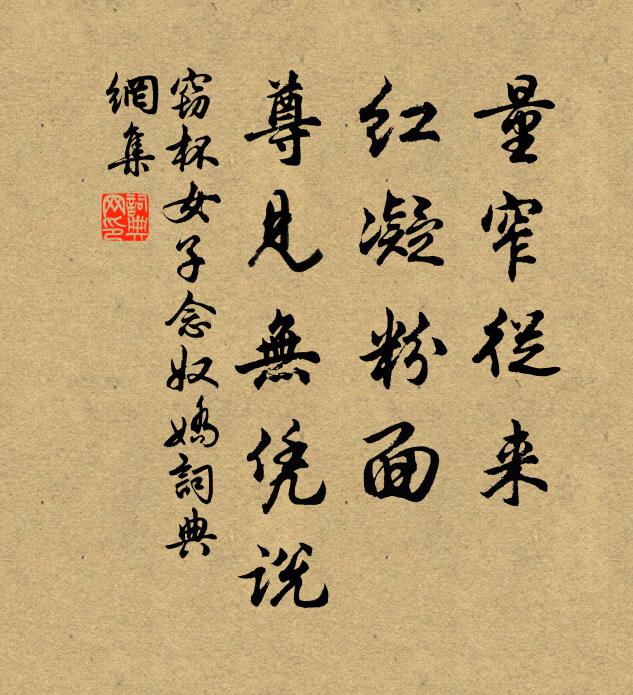 量窄从来
红凝粉面
尊見無凭説
窃杯女子念奴嬌詞典
網集
詞典网印